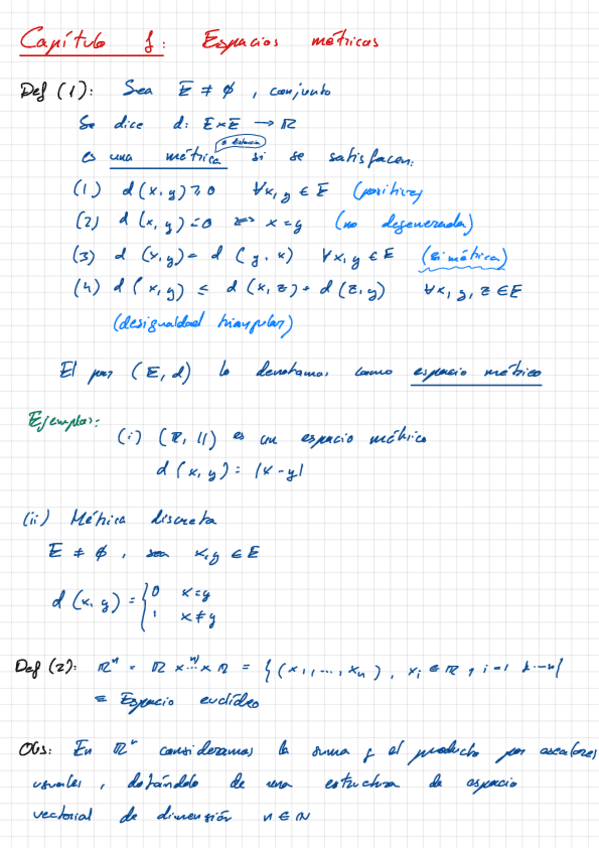 Capítulo 1: Espacios métricos
Def (1): Sea E ≠ ∅, conjunto
Se dice d: E×E → ℝ
o distancia
es una métrica si se satisfacen:
(1) d(x,y) ≥ 0 ∀x,y ∈ E (positiva)
(2) d(x,y)=0 ⟺ x=y (no degenerada)
(3) d(x,y) = d(y,x) ∀x,y ∈ E (simétrica)
(4) d(x,y) ≤ d(x,z) + d(z,y) ∀x,y,z ∈ E
(desigualdad triangular)
El par (E,d) lo denotamos como espacio métrico
Ejemplos:
(i) (ℝ, ||) es un espacio métrico
d(x,y) = |x-y|
(ii) Métrica discreta
E ≠ ∅, x,y ∈ E
d(x,y) = { 0 x=y
1 x≠y
Def (2): ℝⁿ = ℝ × ⁿ⁾... × ℝ = {(x₁,...,xₙ), xᵢ ∈ ℝ, i=1,...,n}
≡ Espacio euclídeo
Obs: En ℝⁿ consideramos la suma y el producto por escalares
usuales, dotándolo de una estructura de espacio
vectorial de dimensión n ∈ ℕ